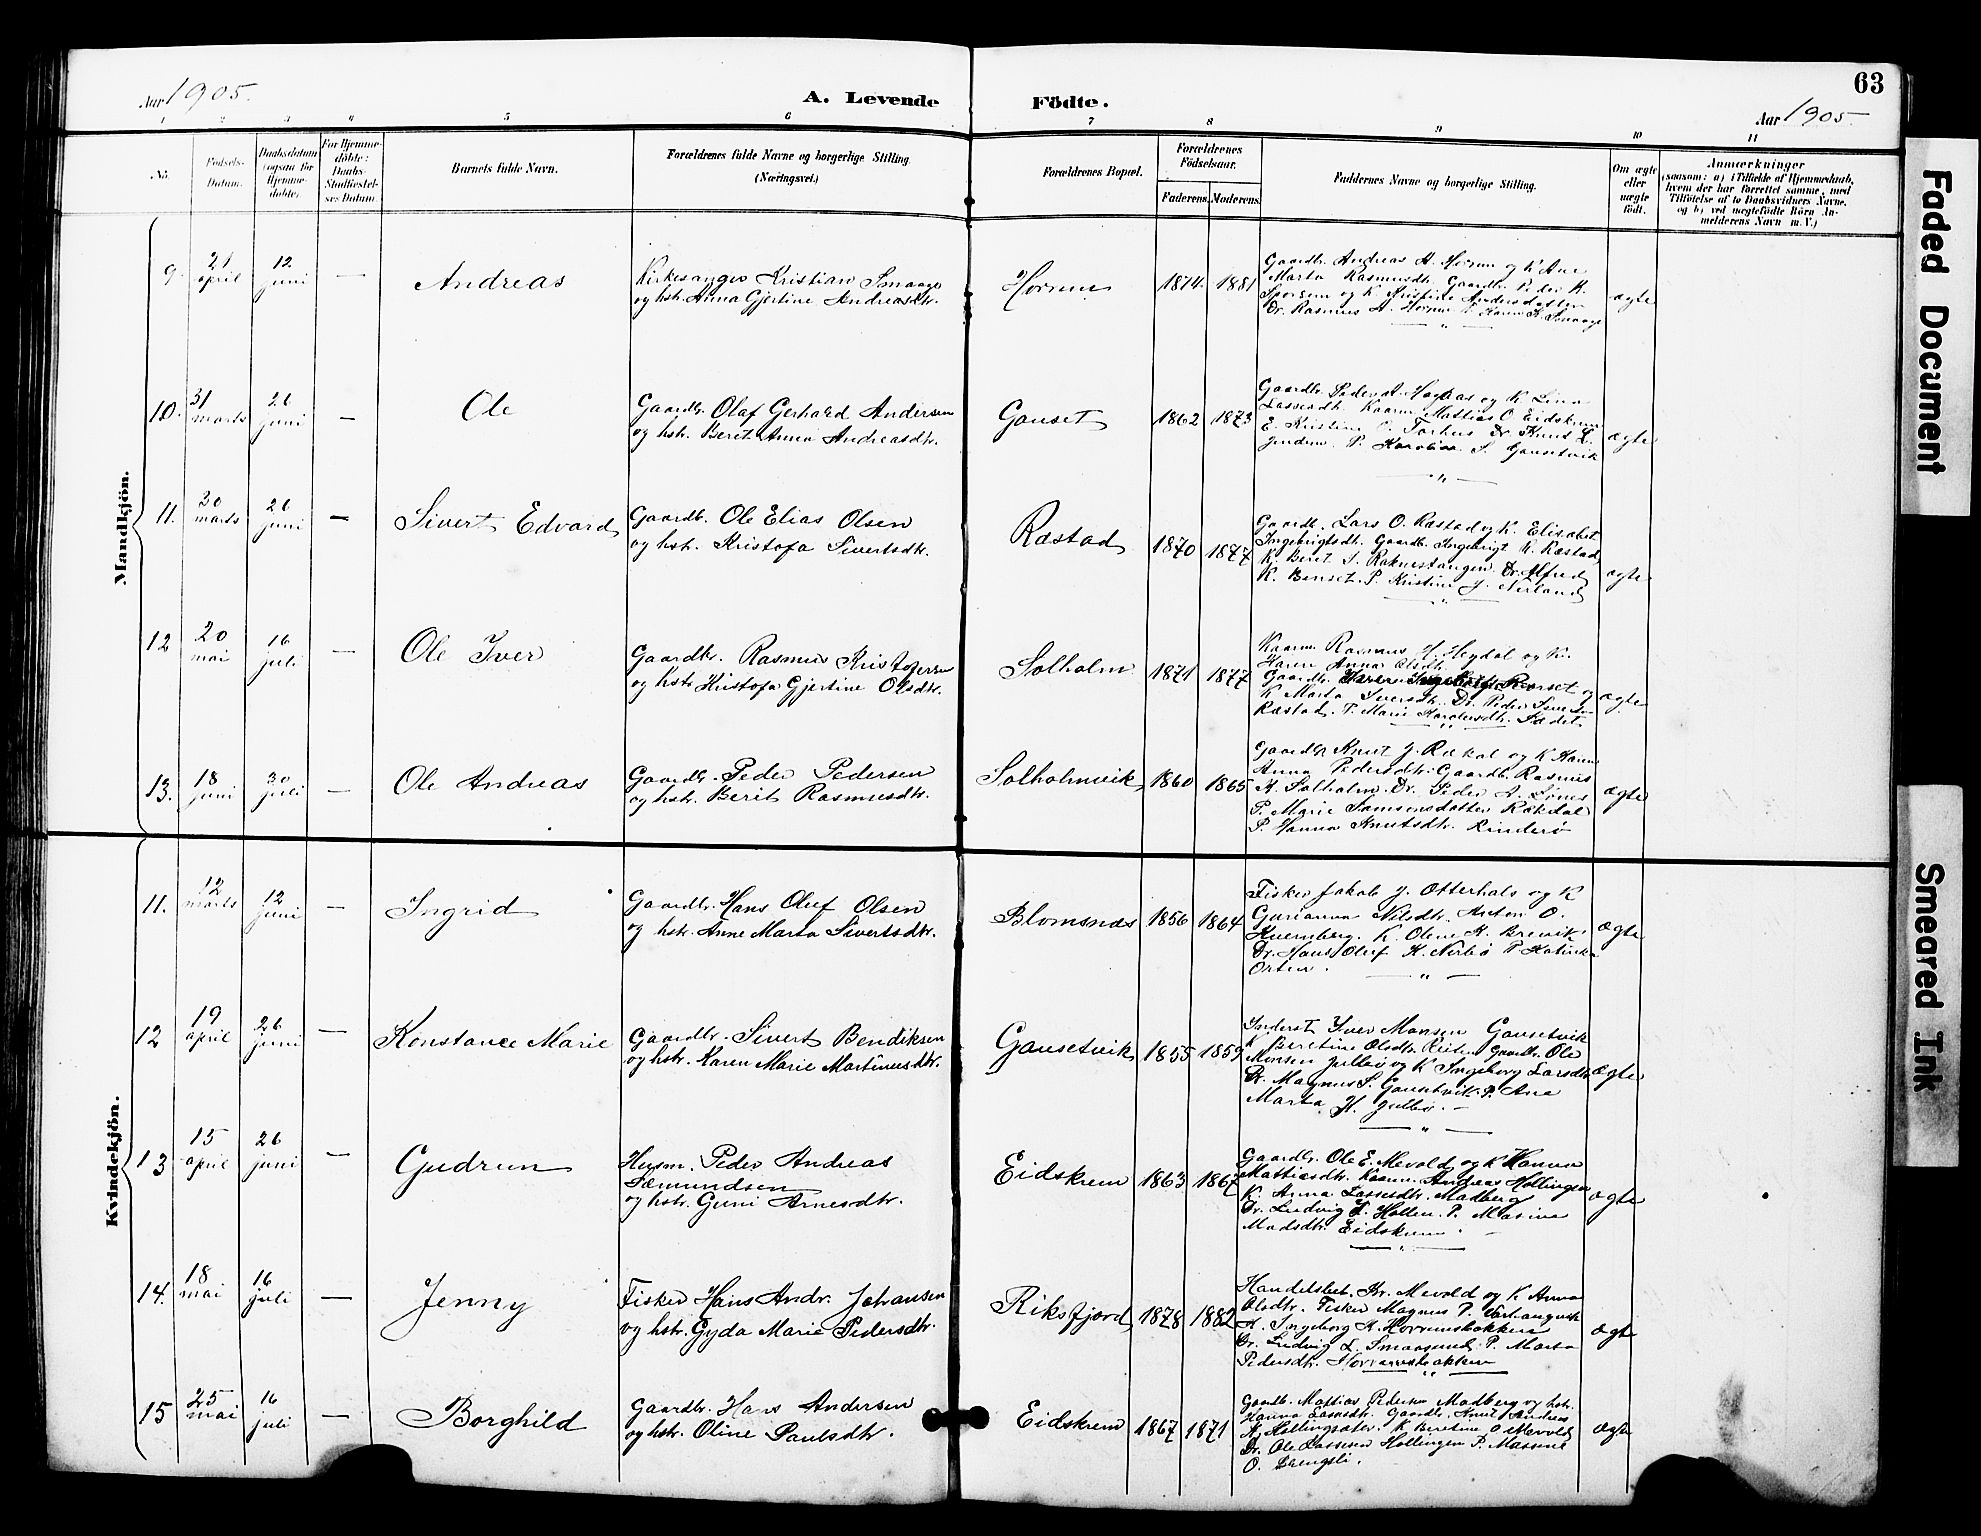 63
Aar 1905.
A. Levende Fødte.
Aar 1905
1 2 3 4 5 6 7 8 9 10 11
No.
Fødsels-Datum.
Daabsdatum (ogsaa for Hjemmedøbte).
For Hjemmedøbte: Daabs-Stadfæstelses Datum.
Barnets fulde Navn.
Forældrenes fulde Navne og borgerlige Stilling.
(Næringsvei.)
Forældrenes Bopæl.
Forældrenes Fødselsaar.
Faderens. Moderens.
Faddernes Navne og borgerlige Stilling.
Om ægte eller uægte født.
Anmærkninger
(saasom: a) i Tilfælde af Hjemmedaab,
hvem der har forrettet samme, med
Tilføielse af to Daabsvidners Navne.
og b) ved uægtefødte Børn An-
melderens Navn m.V.)
Mandkjön.
9 21 april 12 juni — Andreas
Kirkesanger Kristian Smaage
og hst. Anna Gjertine Andreasdtr.
Horrem 1874 1881
Gaardbr. Andreas A. Horrem og K Ane
Marta Rasmusdtr. Gaardbr. Peder K.
og K Kristine Andersdatter
Dr. Rasmus A. Horrem P. Karen K. Smaage
ægte
10. 31 marts 26 juni — Ole
Gaardbr. Olaf Gerhard Andersen
og hst. Beret Anna Andreasdtr.
Gauset 1862 1873
Gaardbr. Peder A. og K Lina
Lassesdtr. Kaarm. Mattias O. Eidskrem
E. Kristine O. Dr. Knut L.
P. S. Gausetvik
ægte
11. 30 marts 26 juni — Sivert Edvard
Gaardb. Ole Elias Olsen
og hst. Kristofa Sivertsdtr.
Ræstad 1870 1877
Gaardb. Lars O. Ræstad og K. Elisabet
Ingebrigtsdtr. Gaardb. Ingebrigt K. Ræstad
K. Beret S. Raknestangen. Dr. Alfred
K. P. Kristine J. Nerland
ægte
12 20 mai 16 juli — Ole Iver
Gaardbr. Rasmus Kristofersen
og hst Kristofa Gjertine Olsdtr.
Solholm 1871 1877
Kaarm. Rasmus H. Hegdal og K.
Karen Anna Olsdtr.
Gaardbr. og
K Marta Iversdtr. Dr. Peder Iversen
Ræstad. P. Marie
ægte
13. 18 juni 30 juli — Ole Andreas
Gaardbr. Peder Pedersen
og hst. Berit Rasmusdtr.
Solholmvik 1860 1865
Gaardbr Knut J. og K Hanna
Anna Pedersdtr. Gaardbr. Rasmus
K. Solholm. Dr. Peder A.
P. Marie Samsonsdatter
P. Hanna Knutsdtr. Rinderø
ægte
Kvindekjön.
11. 12 marts 12 juni — Ingrid
Gaardbr. Hans Oluf Olsen
og hst. Anne Marta Sivertsdtr.
Blomsnæs 1856 1864
Fisker Jakob J. Otterhals og K
Gurianna Nilsdtr. Anton O.
K. Oline K. Brevik
Dr. Hans Oluf K. Nerbø P.
Orten.
ægte
12 19 april 26 juni — Konstance Marie
Gaardbr. Sivert Bendiksen
og hst. Karen Marie Martinusdtr.
Gausetvik 1855 1859
Inderst Iver Monsen Gausetvik
K Beretine Olsdtr. Reiten Gaardbr. Ole
Monsen Julbø og K Ingeborg Larsdtr.
Dr. Magnus S. Gausetvik P. Ane
Marta H. Julbø.
ægte
13 15 april 26 juni — Gudrun
Husm. Peder Andreas
Sæmundsen
og hst. Guni Arnesdtr.
Eidskrem 1863 1867
Gaardbr. Ole E. Mevold og K Hanna
Mattiasdtr. Kaarm. Andreas Hollingen
K. Anna Lassesdtr. Madberg
Dr. Ludvig P. Masina
Madsdtr. Eidskrem.
ægte
14. 18 mai 16 juli — Jenny
Fisker Hans Andr. Johansen
og hst. Gyda Marie Pedersdtr.
Riksfjord 1878 1882
Handelsbet. Kr. Mevold og K Anna
Olsdtr. Fisker Magnus P.
K. Ingeborg K. Horremsbakken
Dr. Ludvig L. Smaasund P. Marta
Pedersdtr. Horremsbakken
ægte
15 25 mai 16 juli — Borghild
Gaardbr. Hans Andersen
og hst. Oline Paulsdtr.
Eidskrem 1867 1871
Gaardb. Mattias Pedersen Madberg og hst.
Hanna Lassesdtr. Gaardbr. Knut Andreas
A. Hollingsæter. K Beretine O Mevold
Dr. Ole Lassesen Hollingen P. Massine
O.
ægte
Faded Document
Smeared Ink